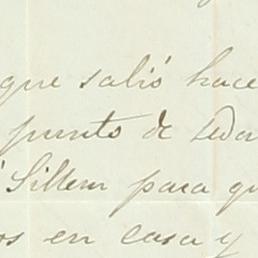 que salió hace
punto de
Sillem para qu
os en casa y